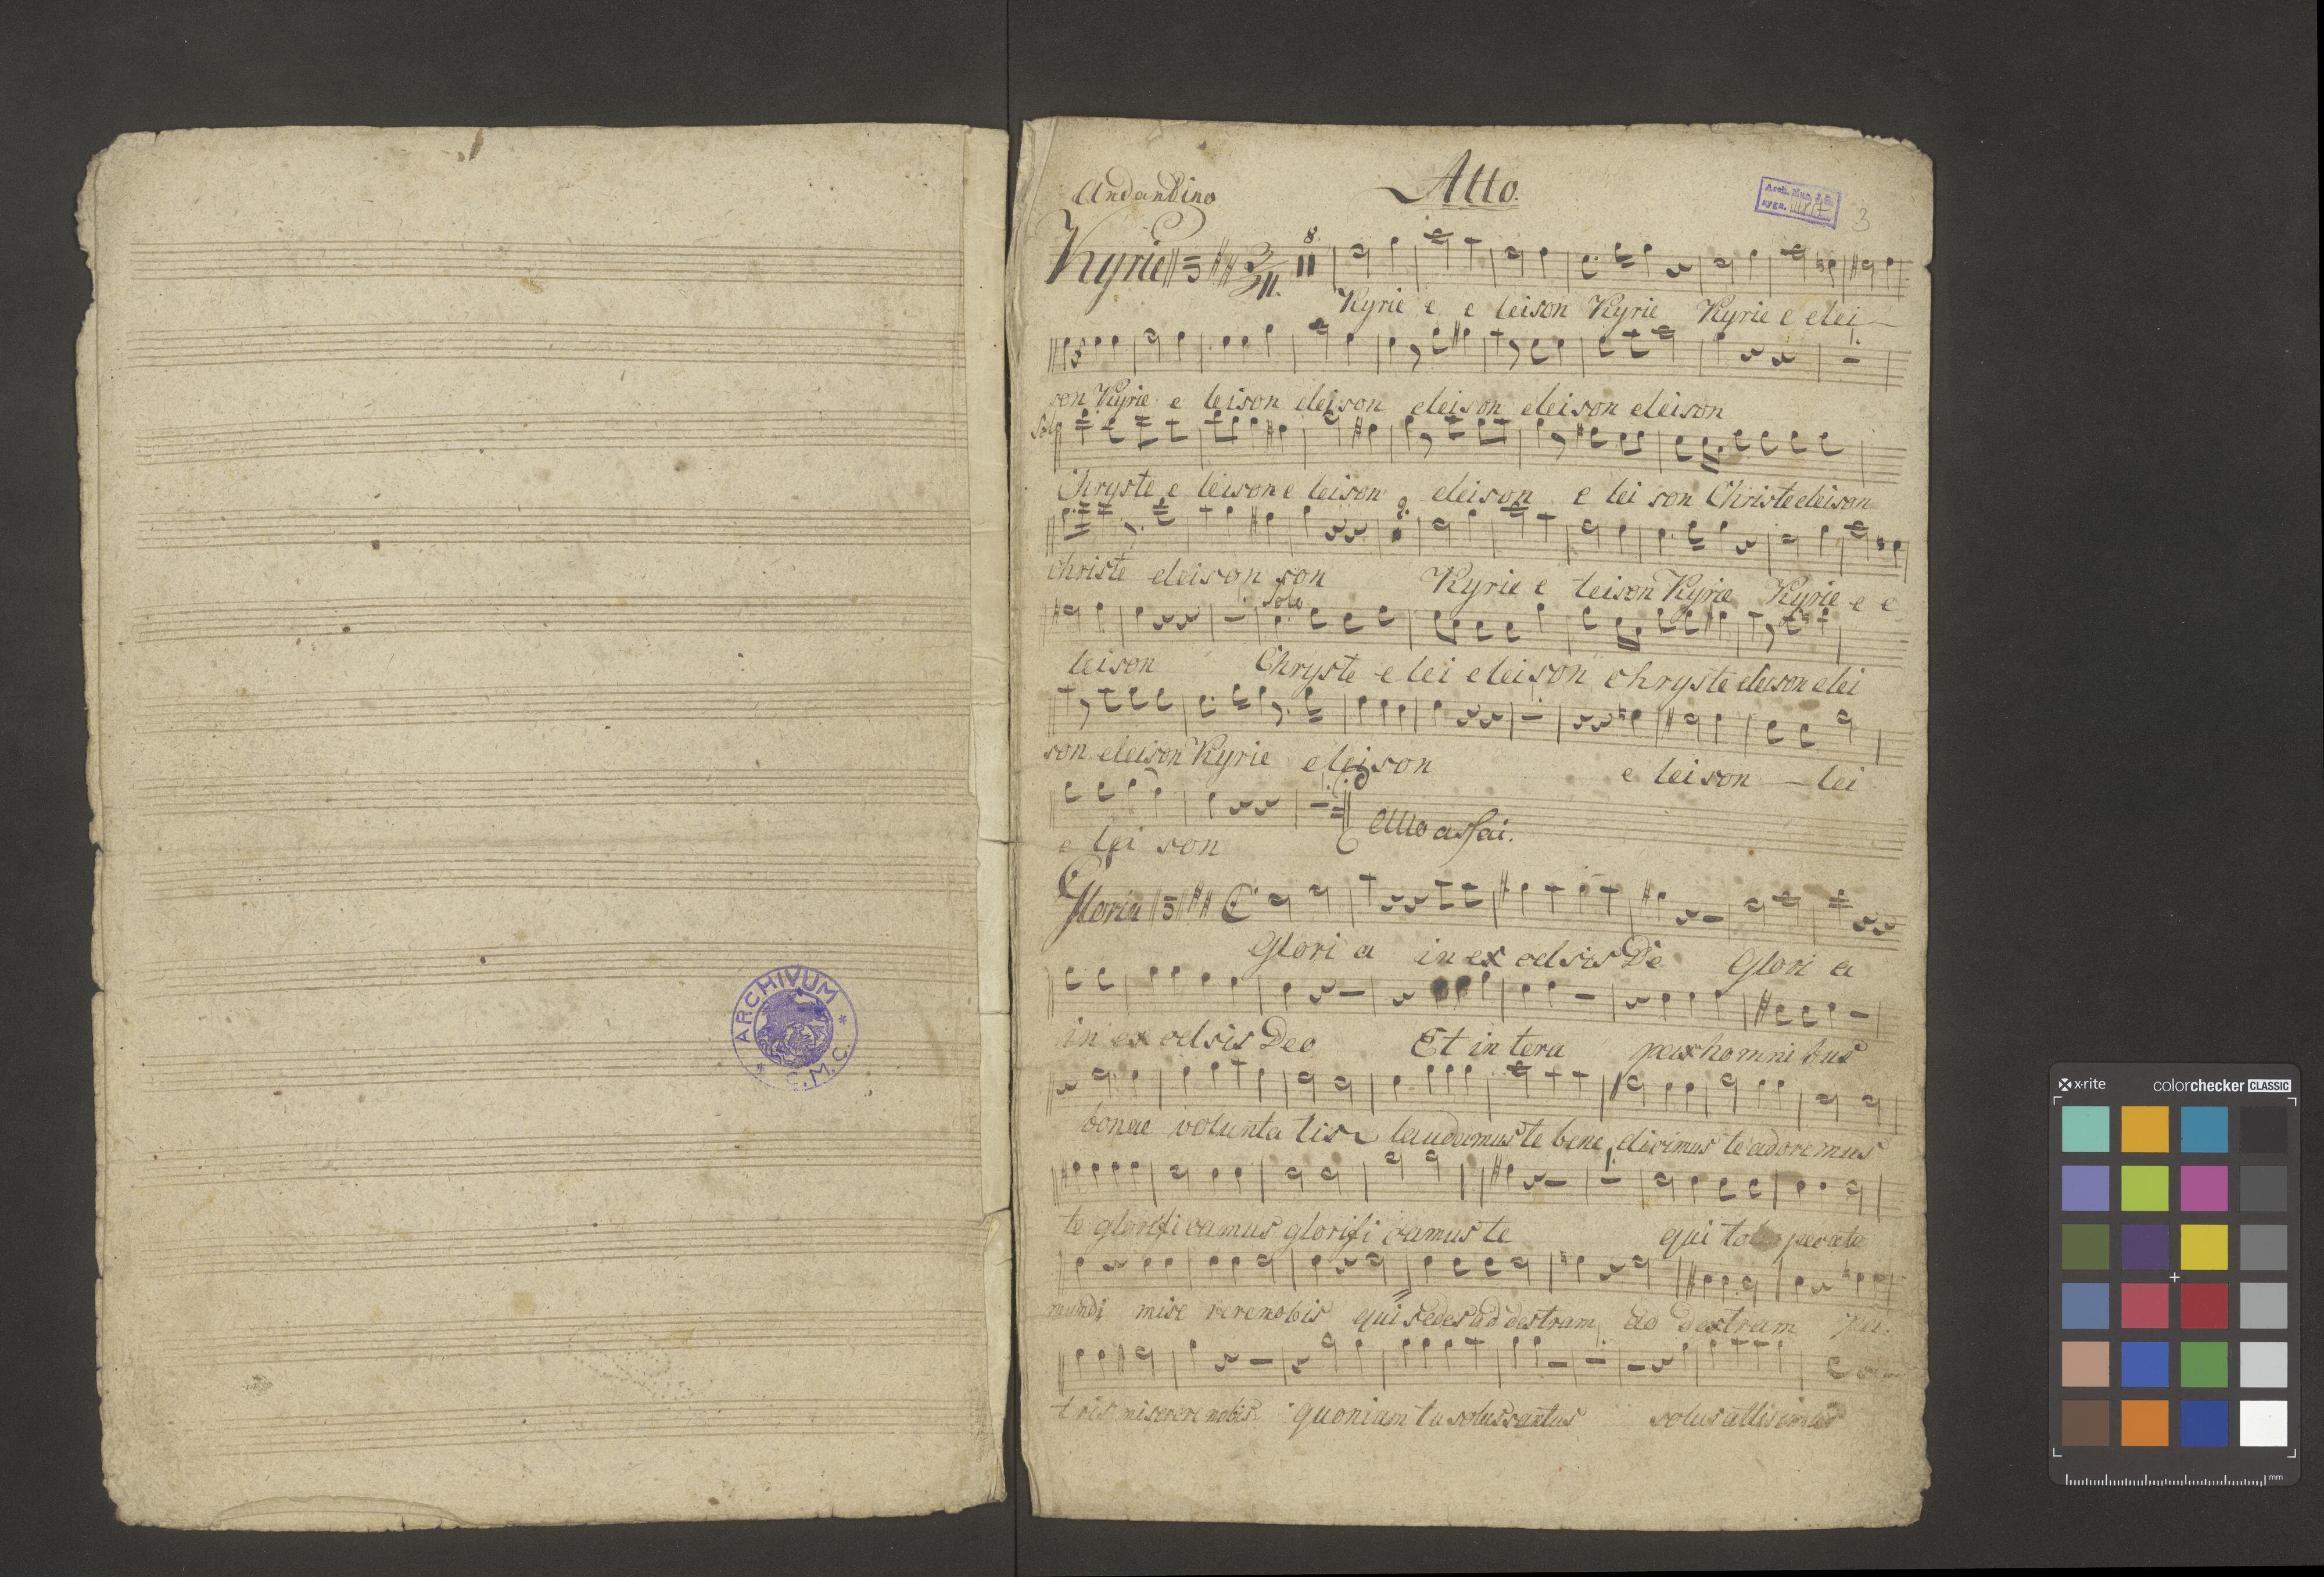 ARCHIVUM
C. M. C.
Andantino
Alto.
3
Kyrie
8
Kyrie e e leison Kyrie Kyrie e elei
son Kyrie e leison eleison eleison eleison eleison
Solo
Chryste e leison e leison eleison e lei son Christe eleison
christe eleison son Kyrie e leison Kyrie Kyrie e e
Solo
leison Chryste e lei eleison chryste eleison elei
son eleison Kyrie eleison e leison — lei
e lei son
Allo assai.
Gloria
Glori a in ex celsis De Glori a
in ex celsis Deo Et in tera pax homni bus
bonae volunta tis laudamus te bene dicimus te adoremus
te glorifi camus glorifi camus te qui pecata
mundi mise rere nobis qui sedes ad destram ad dextram pa
tris miserere nobis quoniam tu solus santus solus altisimus
x-rite
colorchecker CLASSIC
mm